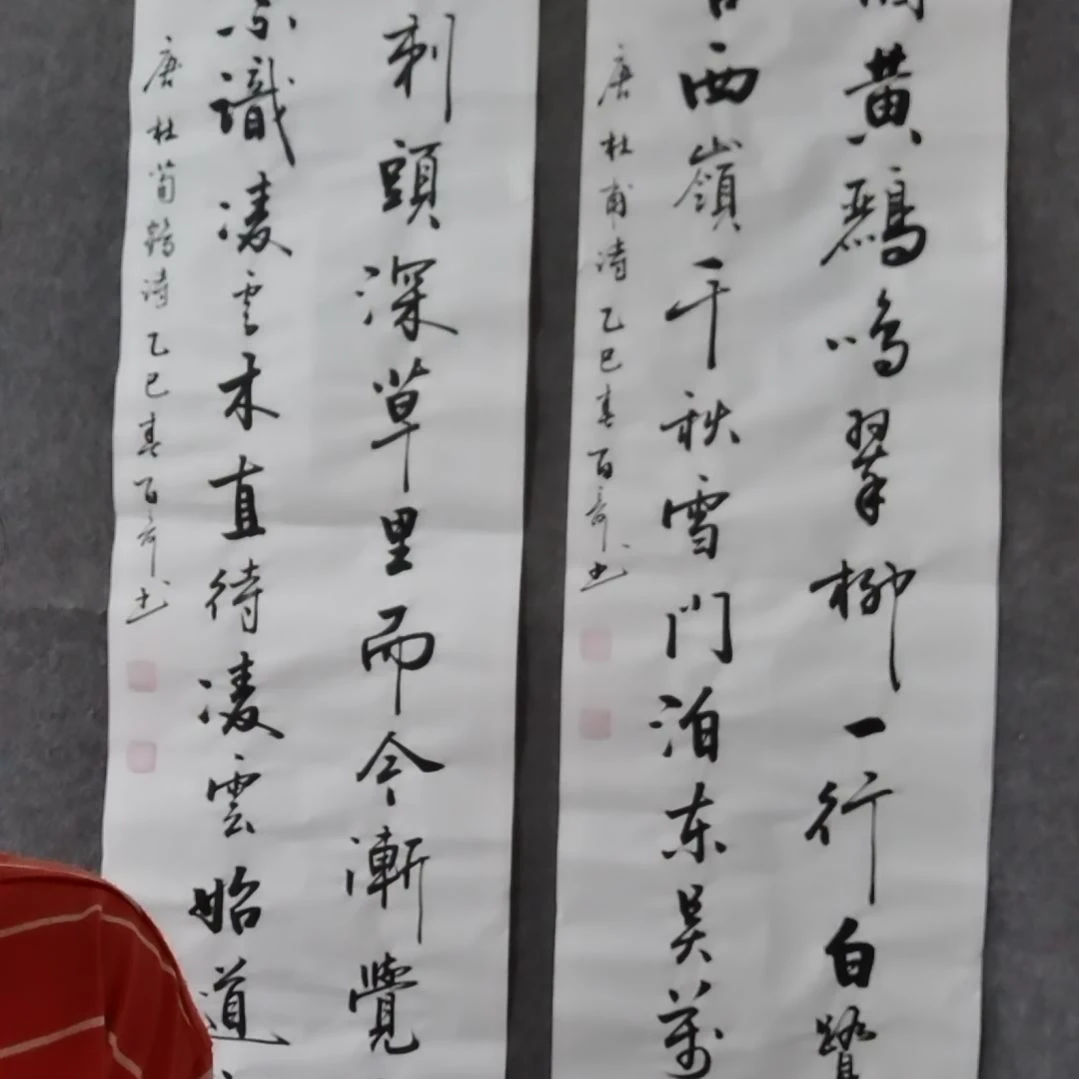 黄鸝鳴翠柳一行白鷺
西嶺千秋雪门泊东吴萬
唐杜甫诗乙巳春百书
刺頭深草里而今漸覺
不識凌雲木直待凌雲始道
唐杜荀鹤诗乙巳春百书